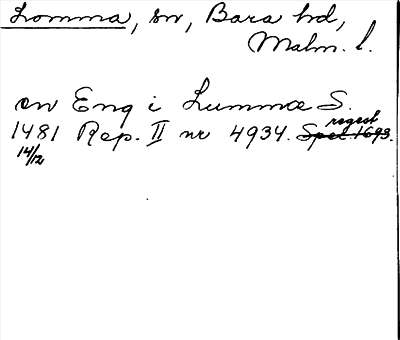 Lomma, sn, Bara hd,
Malm. l.
en Eng i Lummæ S.
regest
1481 Rep. II nr 4934. Spel. 1693.
14/12